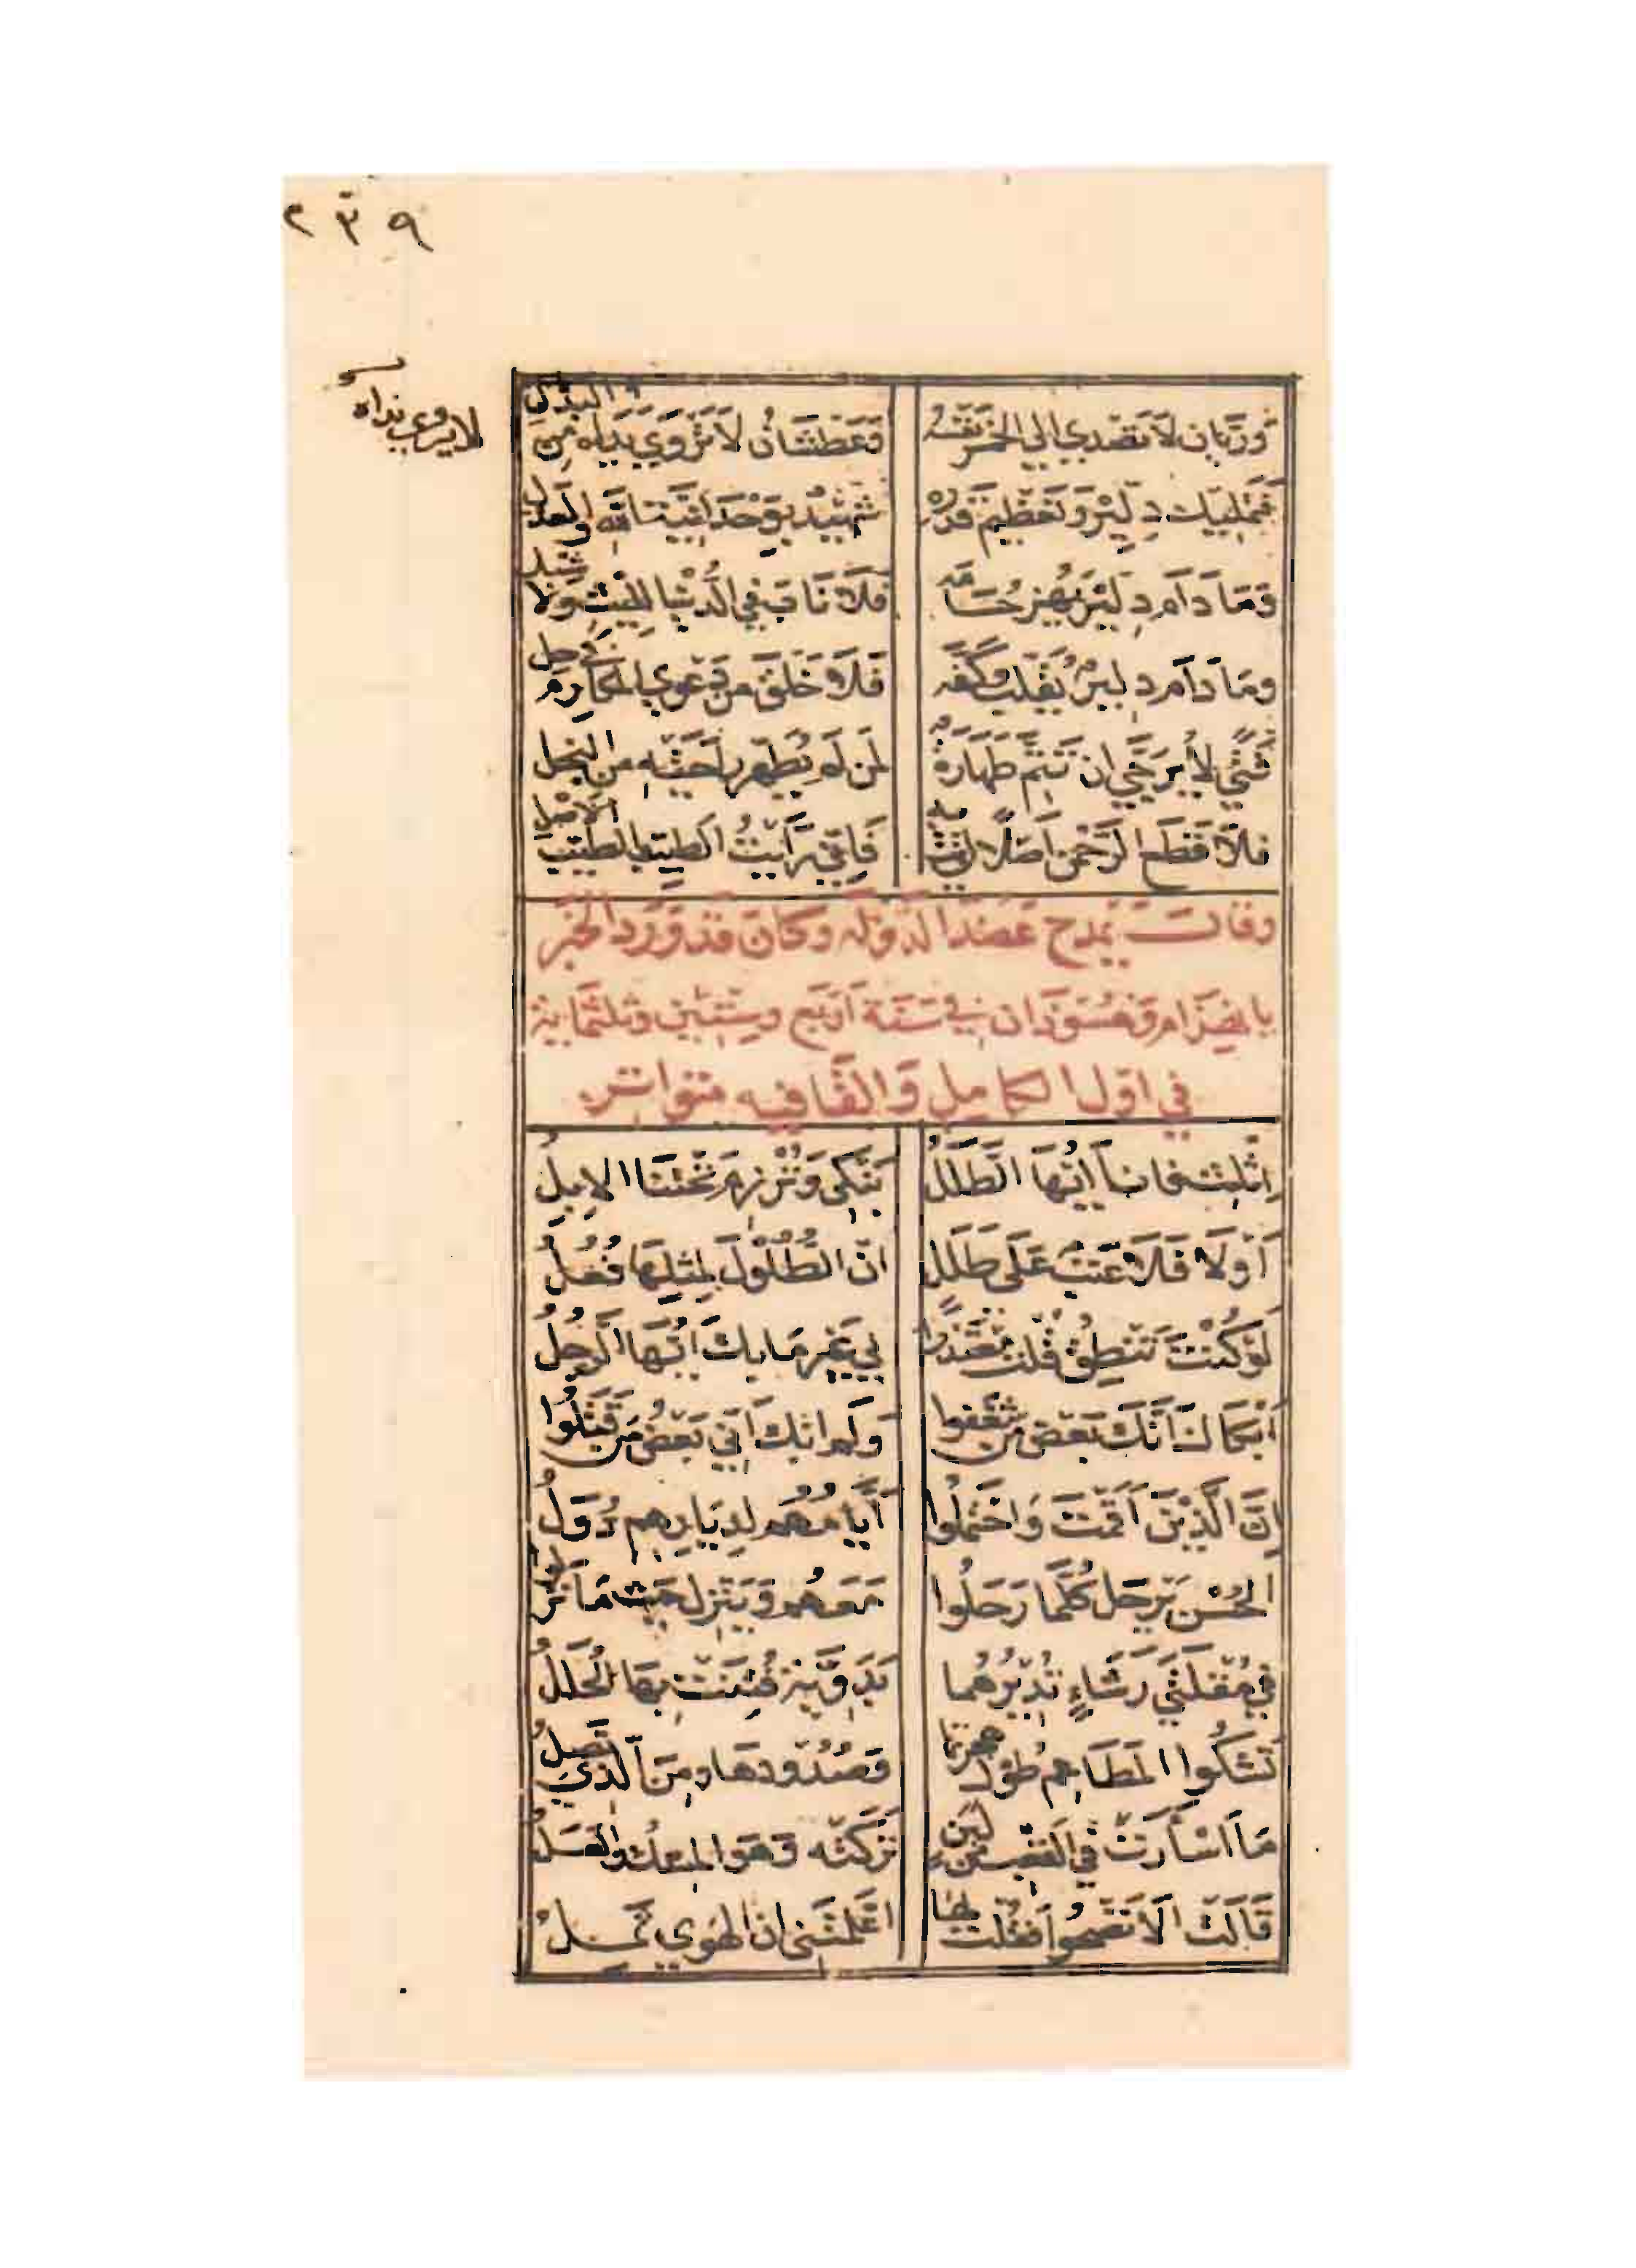 ٢٣٩
لا يروى نداه
وريان لا تصدي الي الخمر نفسه وعطشان لا تروي يداه من البذل
فتمليك دلير وتعظيم قدره شهيد بوحدانية الله والعدل
وما دام دلير يهز حسامه فلا ناب في الدنيا لليث ولا شبل
وما دام دلير يقلب كفه فلا خلق من دعوي المكارم في حل
فتي لا يرجي ان تتم طهارة لمن لم يطهر راحتيه من البخل
فلا قطع الرحمن اصلا اتي به فاني رايت الطيب الطيب الاصل
وقال يمدح عضد الدولة وكان قد ورد الخبر
بانهزام وهسوذان في سنة اربع وستين وثلثماية
في اول الكامل والقافيه متواتر
اثلث فانا ايها الطلل نبكي وترزم تحتنا الابل
اولا فلا عتب على طلل ان الطلول لمثلها فعل
لو كنت تنطق قلت معتذرا بي غير ما بك ايها الرجل
ابكاك انك بعض من شغفوا ولم ابك اني بعض من قتلوا
ان الذين اقمت واحتملوا ايامهم لديارهم دول
الحسن يرحل كلما رحلوا معهم وينزل حيث ما نزلوا
في مقلتي رشاء تديرهما بدوية فتنت بها الحلل
تشكوا المطاعم طول هجرتها وصدودها ومن الذي تصل
ما اسأرت في القعب من لبن تركته وهو المسك والعسل
قالت الا تصحوا فقلت لها اعلمتني ان الهوي ثمل